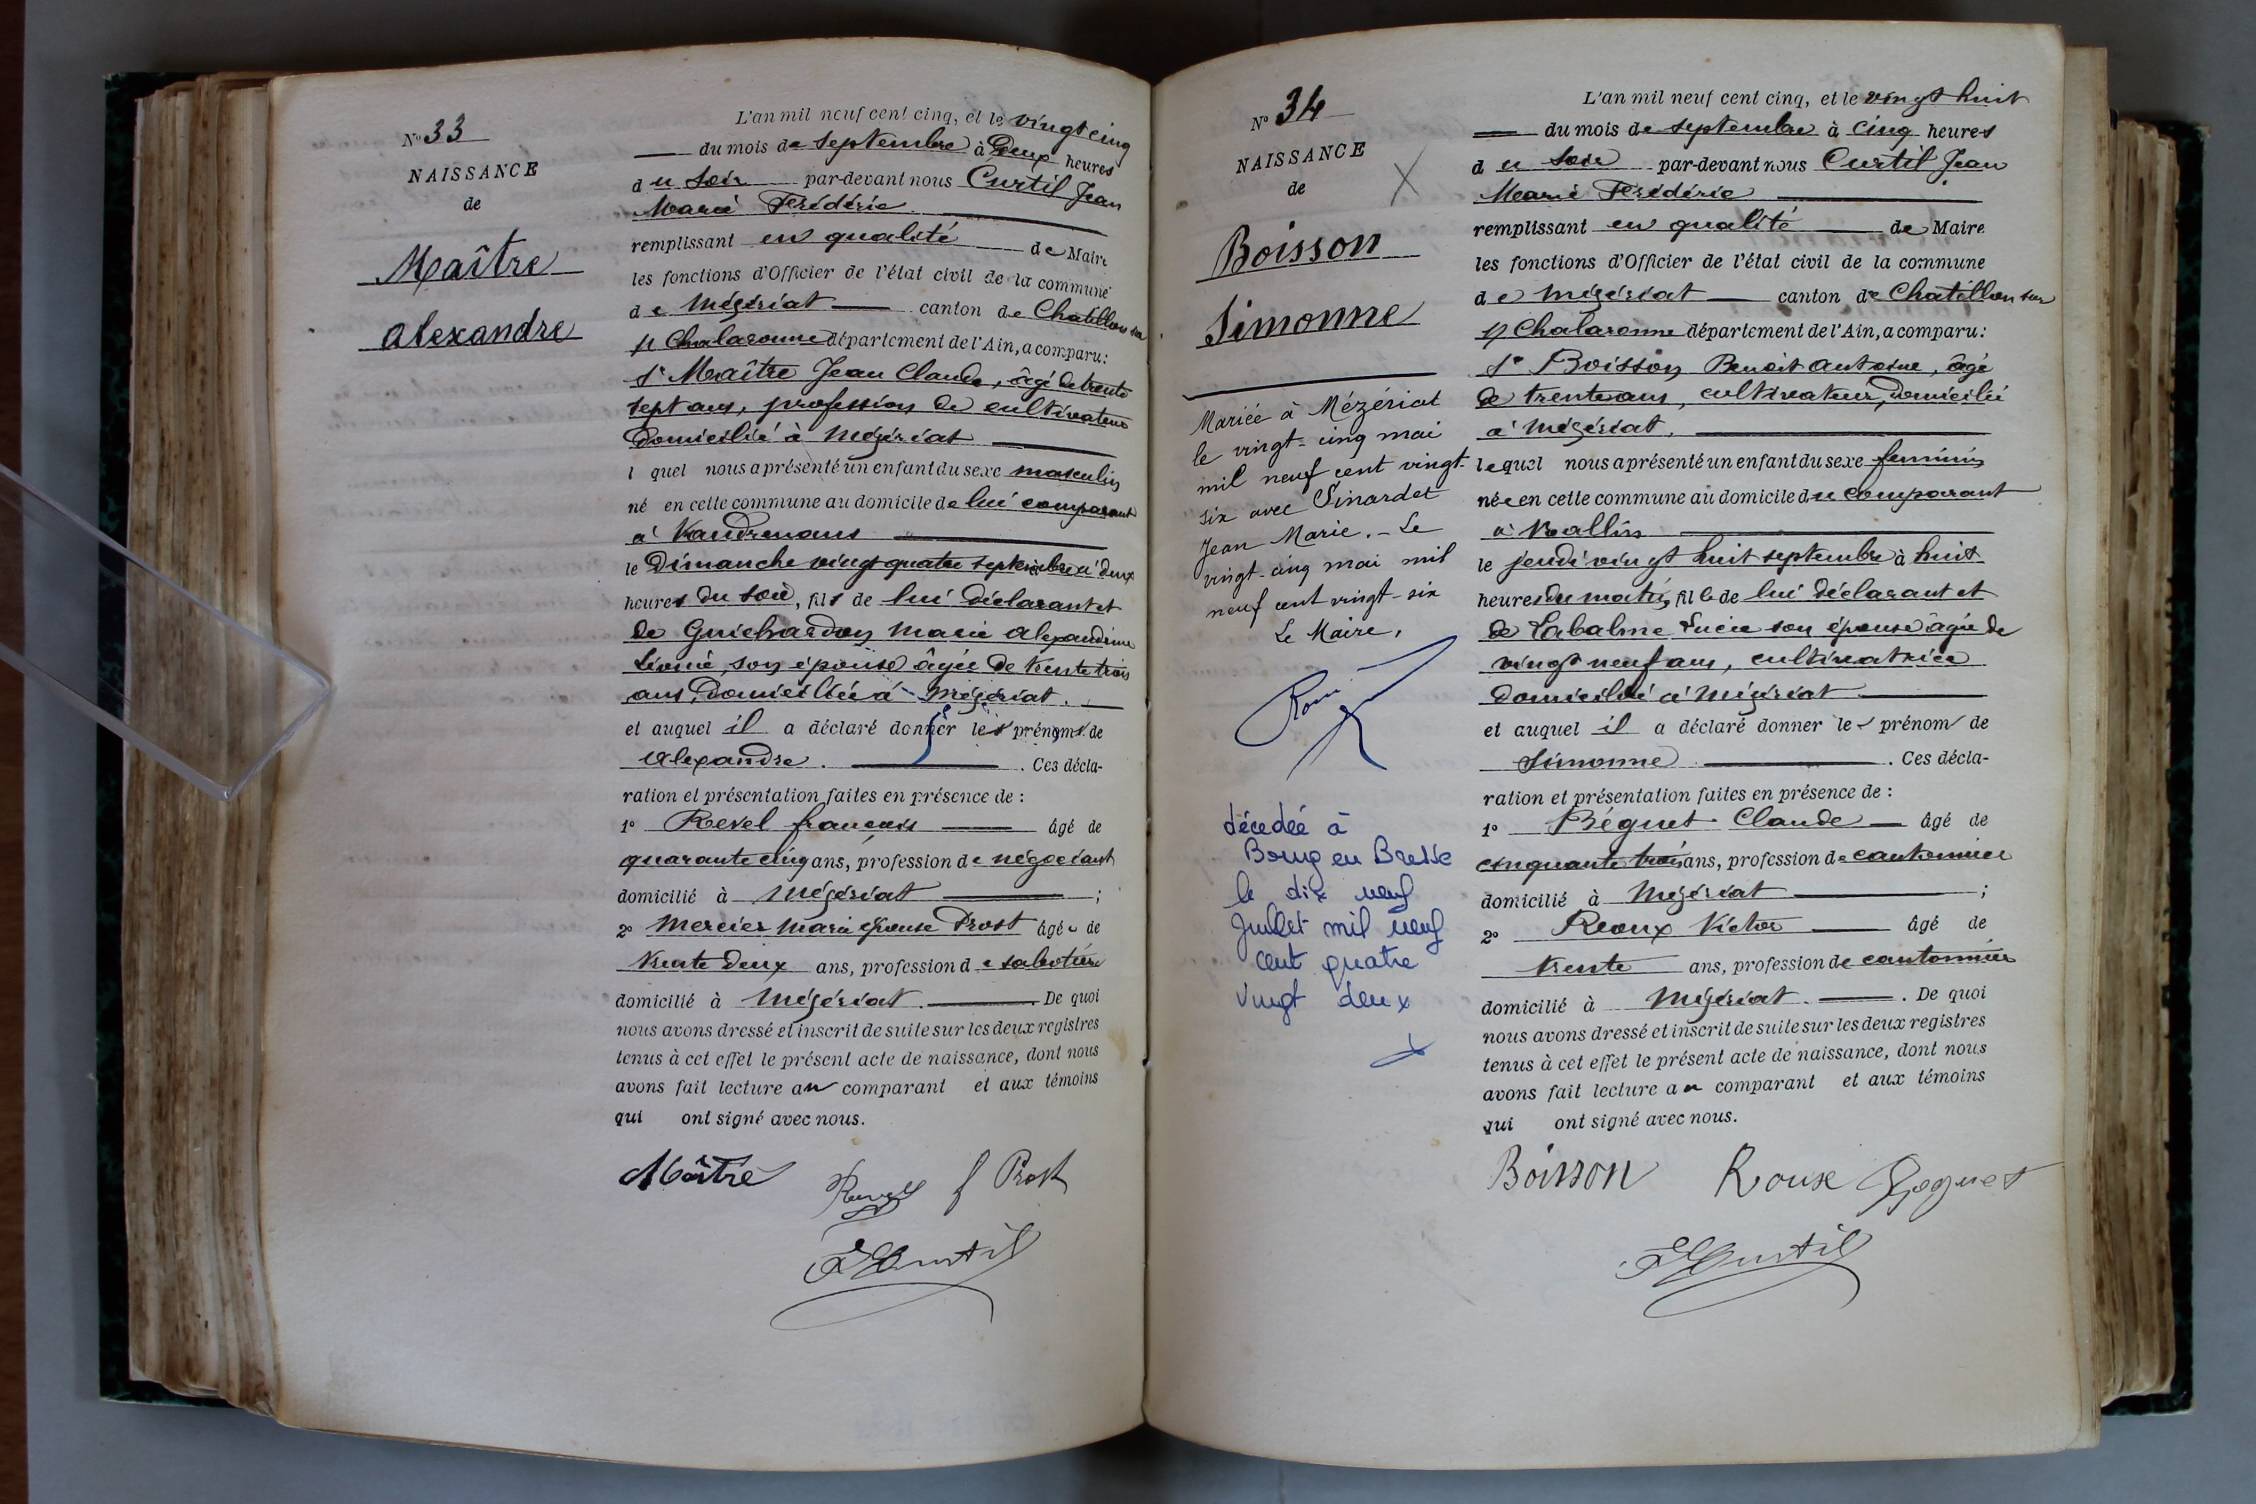 N° 33
NAISSANCE
de
Maître
Alexandre
L'an mil neuf cent cinq, et le vingt cinq
du mois de septembre à Deux heures
du soir par-devant nous Curtil Jean
Marie Frédéric
remplissant en qualité de Maire
les fonctions d'Officier de l'état civil de la commune
de Mézériat canton de Chatillon sur
Chalaronne département de l'Ain, a comparu:
Sr Maître Jean Claude, âgé de trente
sept ans, profession de cultivateur
domicilié à Mézériat
l quel nous a présenté un enfant du sexe masculin
né en cette commune au domicile de lui comparant
à Vaudrenans
le Dimanche vingt quatre septembre à deux
heures du soir, fils de lui déclarant et
de Guichardon Marie Alexandrine
Léonie, son épouse âgée de trente trois
ans, domiciliée à Mézériat.
et auquel il a déclaré donner les prénoms de
Alexandre. Ces décla-
ration et présentation faites en présence de :
1° Revel françois âgé de
quarante cinq ans, profession de négociant
domicilié à Mézériat ;
2° Mercier Marie épouse Prost âgée de
trente deux ans, profession de sabotière
domicilié à Mézériat. De quoi
nous avons dressé et inscrit de suite sur les deux registres
tenus à cet effet le présent acte de naissance, dont nous
avons fait lecture au comparant et aux témoins
qui ont signé avec nous.
Maître Revel f Prost
F Curtil
N° 34
NAISSANCE
de
Boisson
Simonne
Mariée à Mézériat
le vingt-cinq mai
mil neuf cent vingt-
six avec Sinardet
Jean Marie. - Le
vingt-cinq mai mil
neuf cent vingt-six
Le Maire,
décedée à
Bourg en Bresse
le dix neuf
Juillet mil neuf
cent quatre
vingt deux
L'an mil neuf cent cinq, et le vingt huit
du mois de septembre à cinq heures
du soir par-devant nous Curtil Jean
Marie Frédéric
remplissant en qualité de Maire
les fonctions d'Officier de l'état civil de la commune
de Mézériat canton de Chatillon sur
Chalaronne département de l'Ain, a comparu:
Sr Boisson Benoit Antoine, âgé
de trente ans, cultivateur, domicilié
à Mézériat.
lequel nous a présenté un enfant du sexe feminin
née en cette commune au domicile du comparant
à Vallin
le jeudi vingt huit septembre à huit
heures du matin, fille de lui déclarant et
de Labalme Lucie son épouse âgée de
vingt neuf ans, cultivatrice
domiciliée à Mézériat
et auquel il a déclaré donner le prénom de
Simonne. Ces décla-
ration et présentation faites en présence de :
1° Béguet Claude âgé de
cinquante trois ans, profession de cantonnier
domicilié à Mézériat ;
2° Roux Victor âgé de
trente ans, profession de cantonnier
domicilié à Mézériat. De quoi
nous avons dressé et inscrit de suite sur les deux registres
tenus à cet effet le présent acte de naissance, dont nous
avons fait lecture au comparant et aux témoins
qui ont signé avec nous.
Boisson Roux Beguet
F Curtil